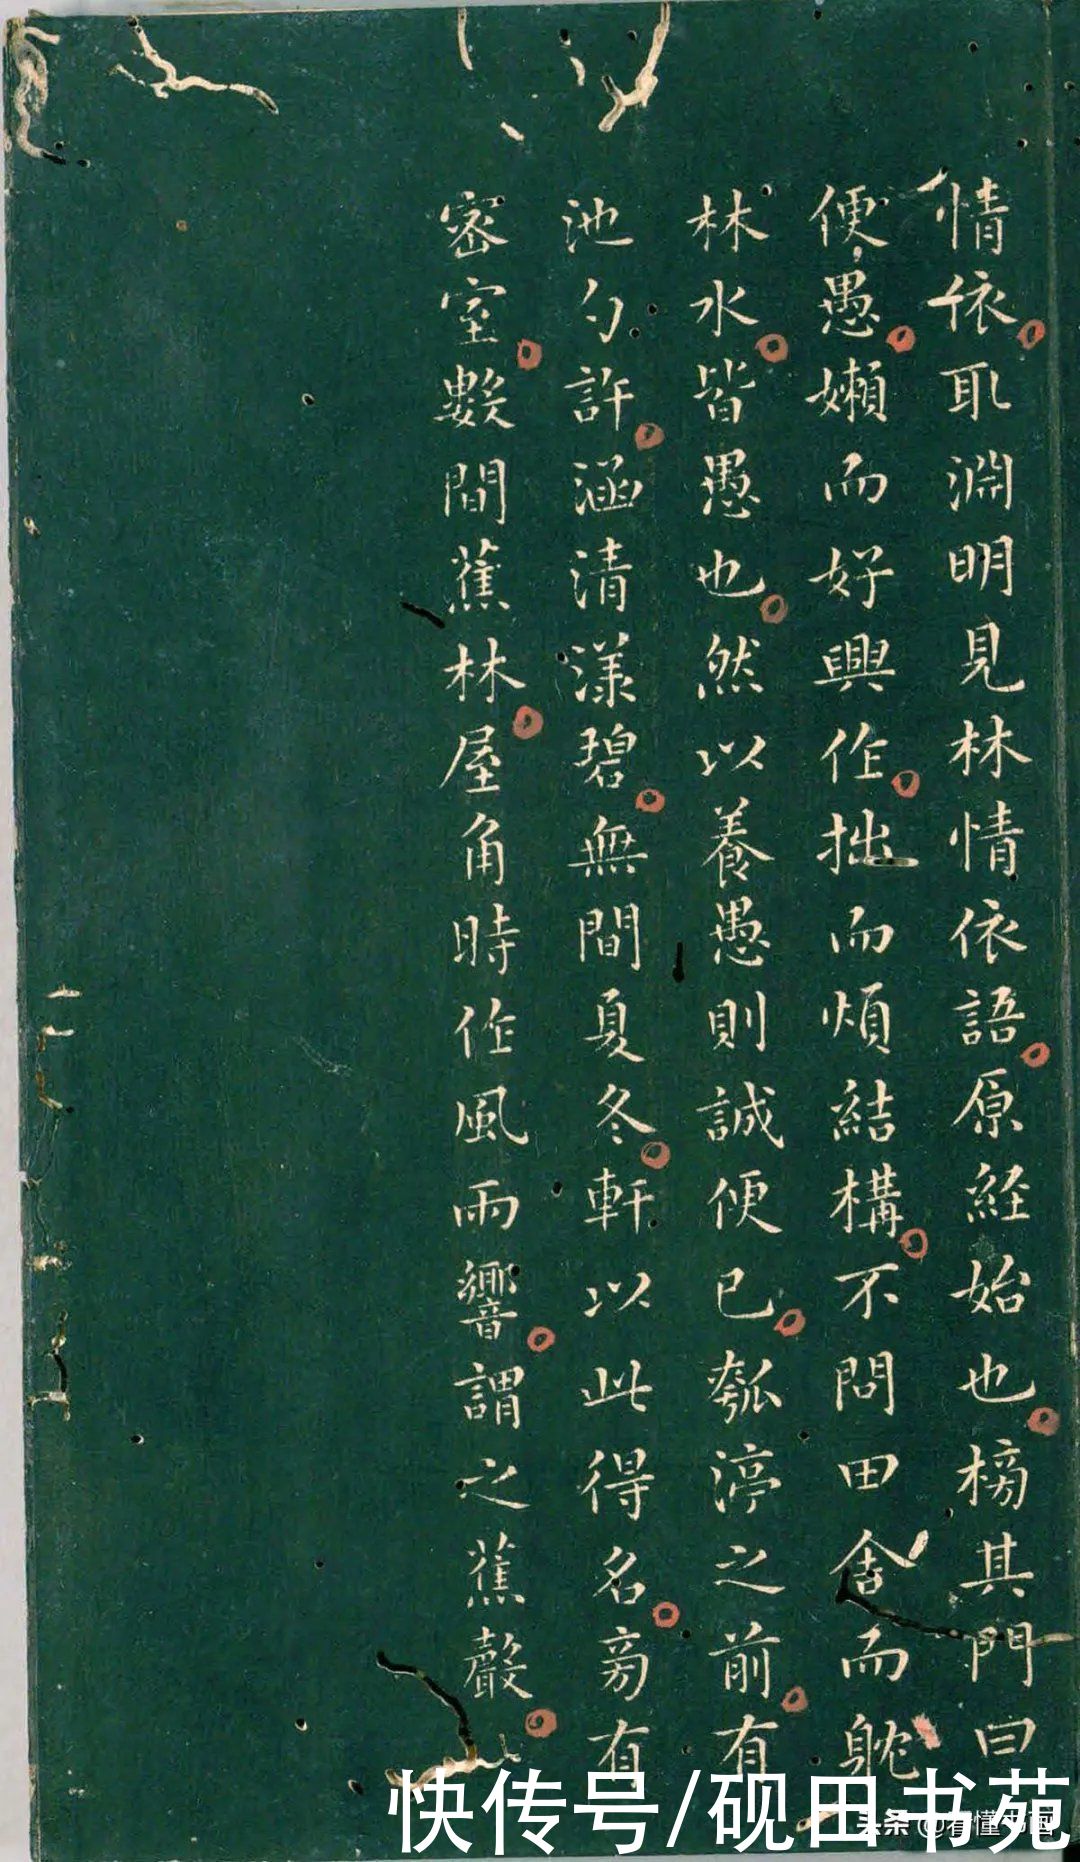 情依取淵明見林情依語原経始也榜其門曰
便愚嬾而好興作拙而煩結構不問田舍而躭
林水皆愚也然以養愚愚則誠便已瓠渟之前有
池勺許涵清漾碧無間夏冬軒以此得名旁有
密室數間蕉林屋角時作風雨響謂之蕉聲
快传号/砚田书苑
头条 @看懂书画